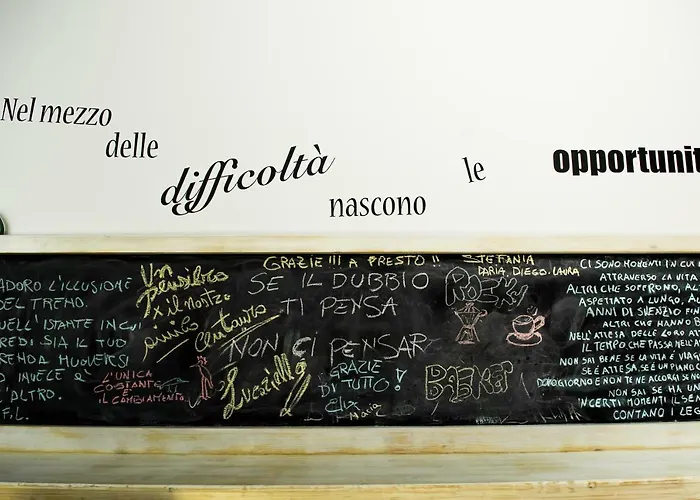 Nel mezzo
delle
difficoltà
nascono
le
opportunit
ADORO L'ILLUSIONE
DEL TRENO.
QUELL'ISTANTE IN CUI
CREDI SIA IL TUO
MUOVERSI
INVECE È
L'ALTRO.
F.L.
L'UNICA
COSTANTE È
IL CAMBIAMENTO
Un
pensiero
x il nostro
piccolo centauro
Lucariello
GRAZIE!!! A PRESTO!!
SE IL DUBBIO
TI PENSA
NON CI PENSAR
GRAZIE
DI TUTTO!
Elix
Maria
STEFANIA
DARIA, DIEGO, LAURA
ROCKY
BASKET
CI SONO MOMENTI IN CUI
ATTRAVERSO LA VITA
ALTRI CHE SOFFRONO, AL
ASPETTATO A LUNGO, AL
ANNI DI SILENZIO FIN
ALTRI CHE HANNO
NELL'ATTESA DELLE LORO
IL TEMPO CHE PASSA NELL'A
NON SAI BENE SE LA VITA È VIA
SE È ATTESA, SE È UN PIANO
DOPO GIORNO E NON TE NE ACCORGI
NON SAI SE HA
INCERTI MOMENTI IL SE
CONTANO I LEG